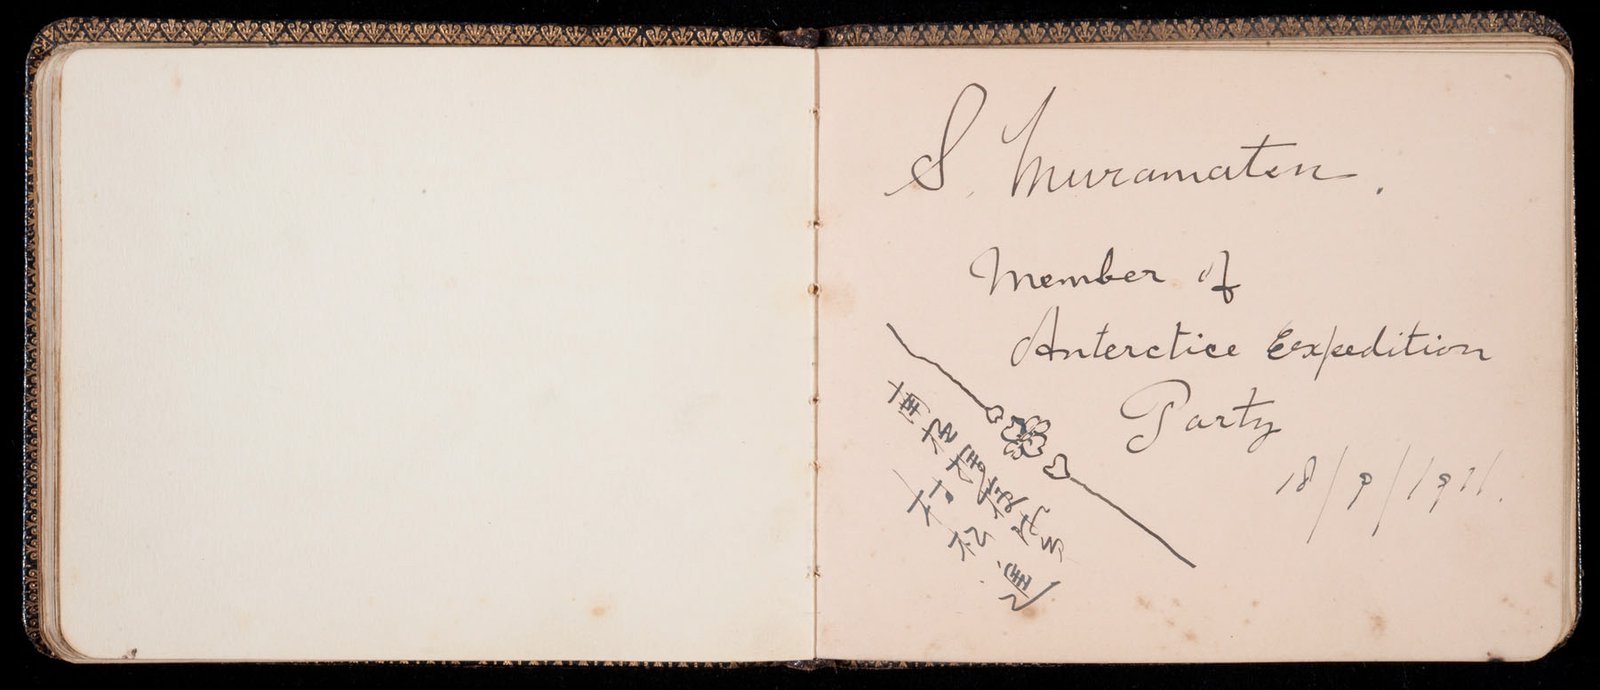 S. Muramatsu.
Member of
Anterctice Expedition
Party
18/9/1911.
村松進